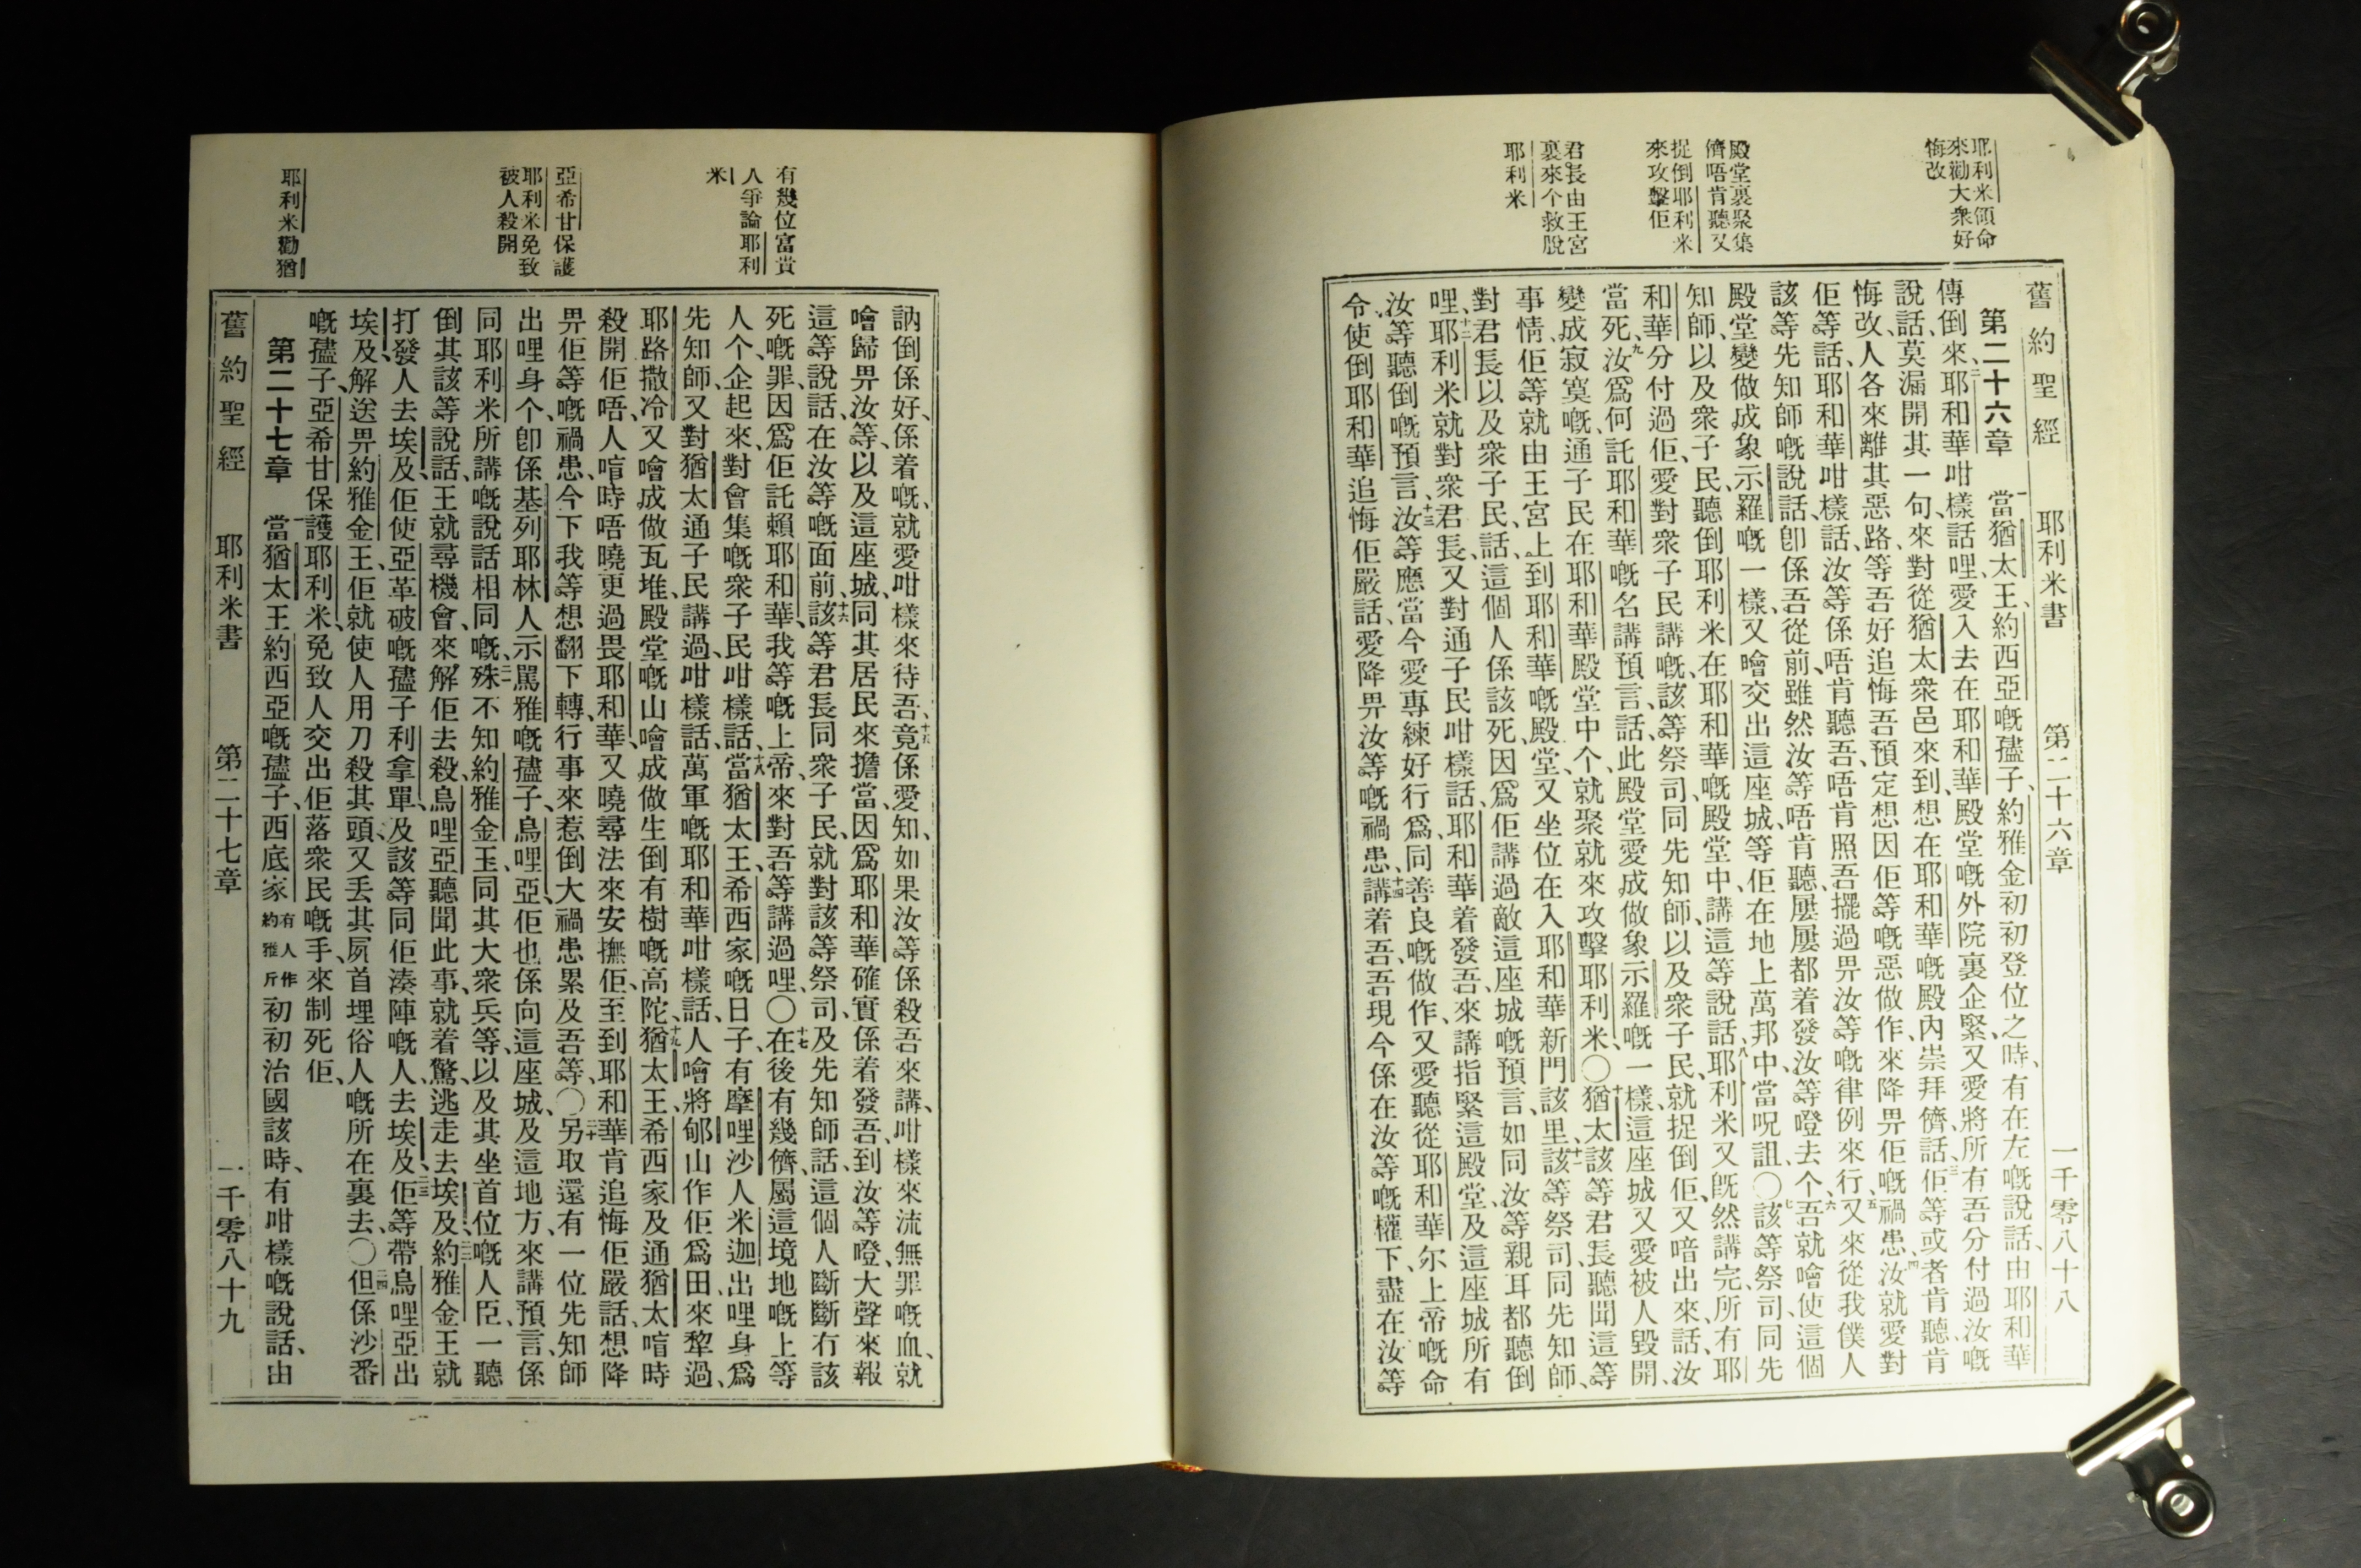 舊約聖經 耶利米書 第二十六章 一千零八十八
耶利米領命
來勸大衆好
悔改
殿堂裏聚集
儕唔肯聽又
捉倒耶利米
來攻擊佢
君長由王宮
裏來个救脫
耶利米
第二十六章 一當猶太王、約西亞嘅孻子、約雅金初初登位之時、有在左嘅說話、由耶和華
傳倒來、二耶和華咁樣話哩、愛入去在耶和華殿堂嘅外院裏企緊、又愛將所有吾分付過汝嘅
說話、莫漏開其一句、來對從猶太衆邑來到、想在耶和華嘅殿內崇拜儕話、三佢等或者肯聽、肯
悔改、人各來離其惡路、等吾好追悔吾預定想因佢等嘅惡做作、來降畀佢嘅禍患、四汝就愛對
佢等話、耶和華咁樣話、汝等係唔肯聽吾、唔肯照吾擺過畀汝等嘅律例來行、五又來從我僕人
該等先知師嘅說話、卽係吾從前、雖然汝等唔肯聽、屢屢都着發汝等噔去个、六吾就噲使這個
殿堂變做成象示羅嘅一樣、又噲交出這座城、等佢在地上萬邦中、當呪詛、〇七該等祭司、同先
知師、以及衆子民、聽倒耶利米在耶和華嘅殿堂中、講這等說話、八耶利米又旣然講完、所有耶
和華分付過佢、愛對衆子民講嘅、該等祭司、同先知師、以及衆子民、就捉倒佢、又喑出來、話、汝
當死、九汝爲何託耶和華嘅名講預言、話、此殿堂愛成做象示羅嘅一樣、這座城又愛被人毀開、
變成寂寞嘅、通子民在耶和華殿堂中个、就聚就來攻擊耶利米、〇十猶太該等君長聽聞這等
事情、佢等就由王宮上到耶和華嘅殿堂、又坐位在入耶和華新門該里、十一該等祭司、同先知師、
對君長以及衆子民、話、這個人係該死、因爲佢講過敵這座城嘅預言、如同汝等親耳都聽倒
哩、十二耶利米就對衆君長、又對通子民咁樣話、耶和華着發吾、來講指緊這殿堂、及這座城所有
汝等聽倒嘅預言、十三汝等應當今愛專練好行爲、同善良嘅做作、又愛聽從耶和華尔上帝嘅命
令、使倒耶和華追悔佢嚴話、愛降畀汝等嘅禍患、十四講着吾、吾現今係在汝等嘅權下、盡在汝等
有幾位富貴
人爭論耶利
米
亞希甘保護
耶利米免致
被人殺開
耶利米勸猶
訥倒係好、係着嘅、就愛咁樣來待吾、十五竟係愛知、如果汝等係殺吾來講、咁樣來流無罪嘅血、就
噲歸畀汝等、以及這座城、同其居民來擔當、因爲耶和華確實係着發吾、到汝等噔、大聲來報
這等說話、在汝等嘅面前、十六該等君長同衆子民、就對該等祭司、及先知師、話、這個人斷斷冇該
死嘅罪、因爲佢託賴耶和華、我等嘅上帝、來對吾等講過哩、〇十七在後有幾儕、屬這境地嘅上等
人个、企起來、對會集嘅衆子民咁樣話、十八當猶太王、希西家嘅日子、有摩哩沙人米迦出哩身爲
先知師、又對猶太通子民講過、咁樣話、萬軍嘅耶和華咁樣話、人噲將郇山作佢爲田來犂過、
耶路撒冷又噲成做瓦堆、殿堂嘅山噲成做生倒有樹嘅高陀、十九猶太王、希西家及通猶太喑時
殺開佢唔、人喑時唔曉更過畏耶和華、又曉尋法來安撫佢、至到耶和華肯追悔佢嚴話、想降
畀佢等嘅禍患、今下我等想翻下轉、行事來惹倒大禍患累及吾等、〇二十另取還有一位先知師
出哩身个、卽係基列耶林人示罵雅嘅孻子、烏哩亞、佢也係向這座城、及這地方、來講預言、係
同耶利米所講嘅說話相同嘅、二一殊不知約雅金王、同其大衆兵等、以及其坐首位嘅人臣、一聽
倒其該等說話、王就尋機會、來解佢去殺、烏哩亞聽聞此事、就着驚、逃走去埃及、二二約雅金王就
打發人去埃及、佢使亞革破嘅孻子、利拿單、及該等同佢湊陣嘅人、去埃及、二三佢等帶烏哩亞出
埃及、解送畀約雅金王、佢就使人用刀殺其頭、又丟其屍首埋俗人嘅所在裏去、〇二四但係沙番
嘅孻子、亞希甘保護耶利米、免致人交出佢落衆民嘅手、來制死佢、
第二十七章 一當猶太王約西亞嘅孻子、西底家有人作約雅斤初初治國該時、有咁樣嘅說話、由
舊約聖經 耶利米書 第二十七章 一千零八十九